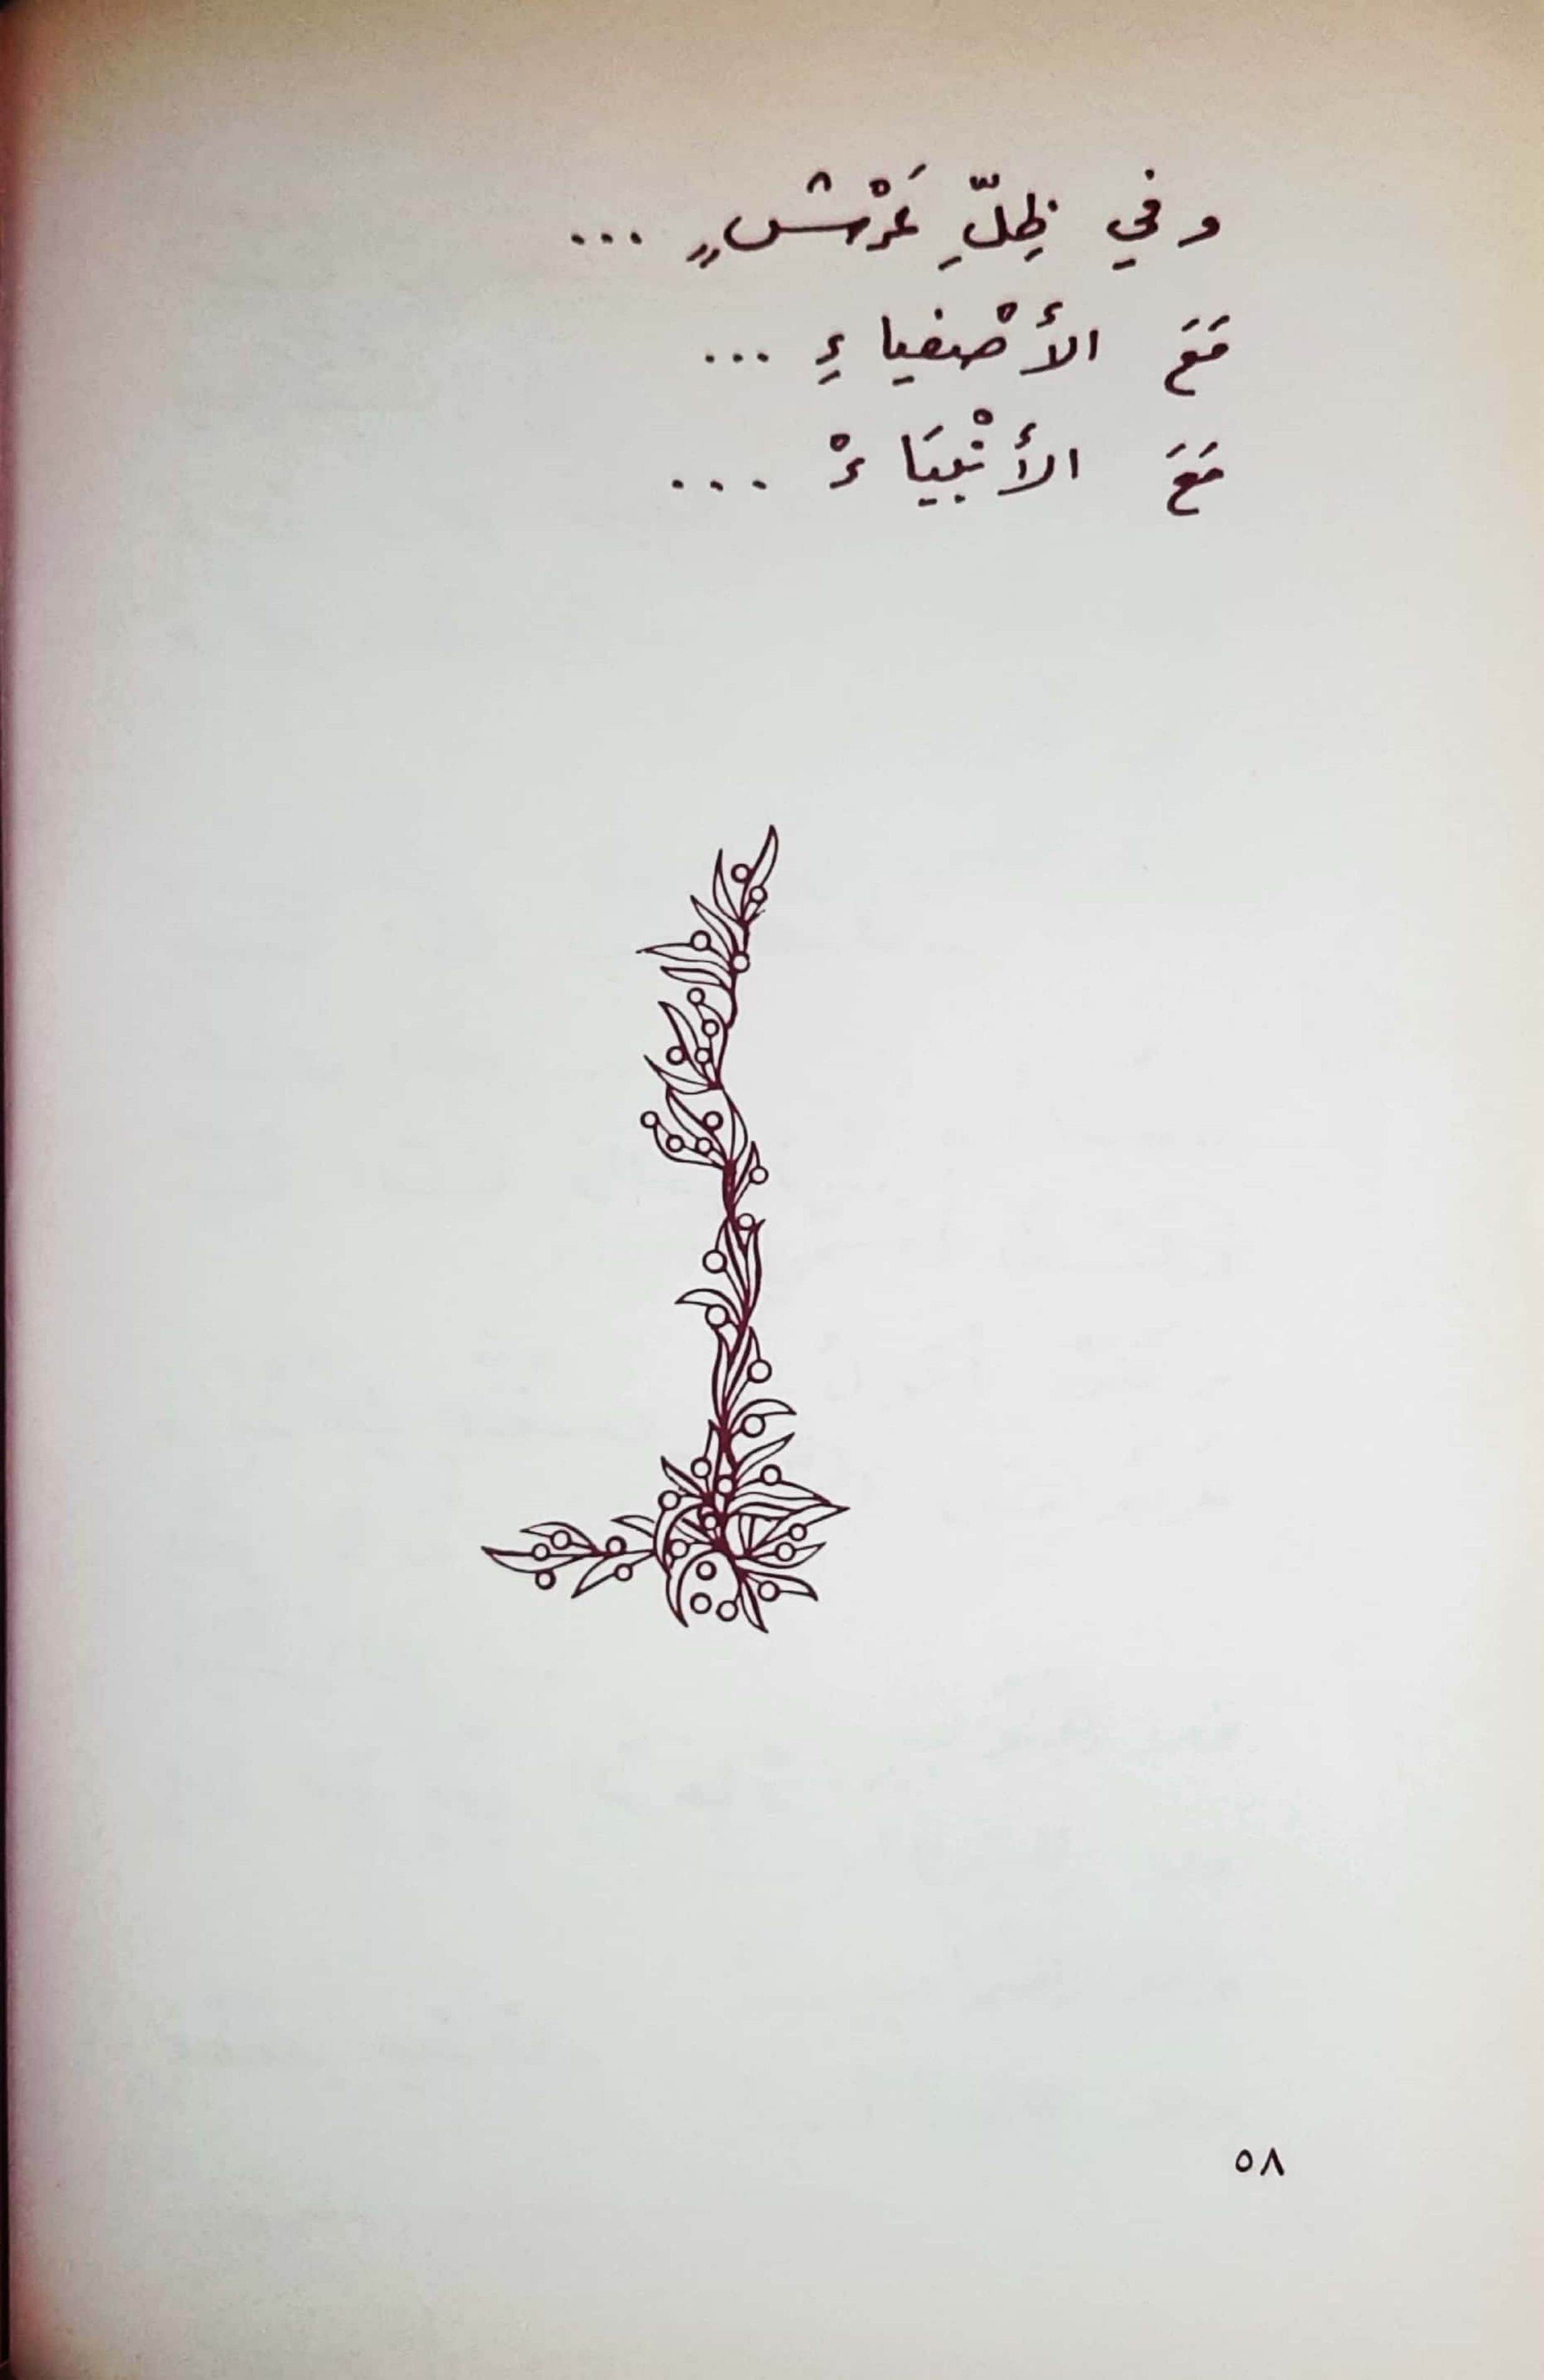 وفي ظِلِّ عَرْشٍ ...
مَعَ الأَصْفياءِ ...
مَعَ الأَنْبيَاءْ ...
٥٨